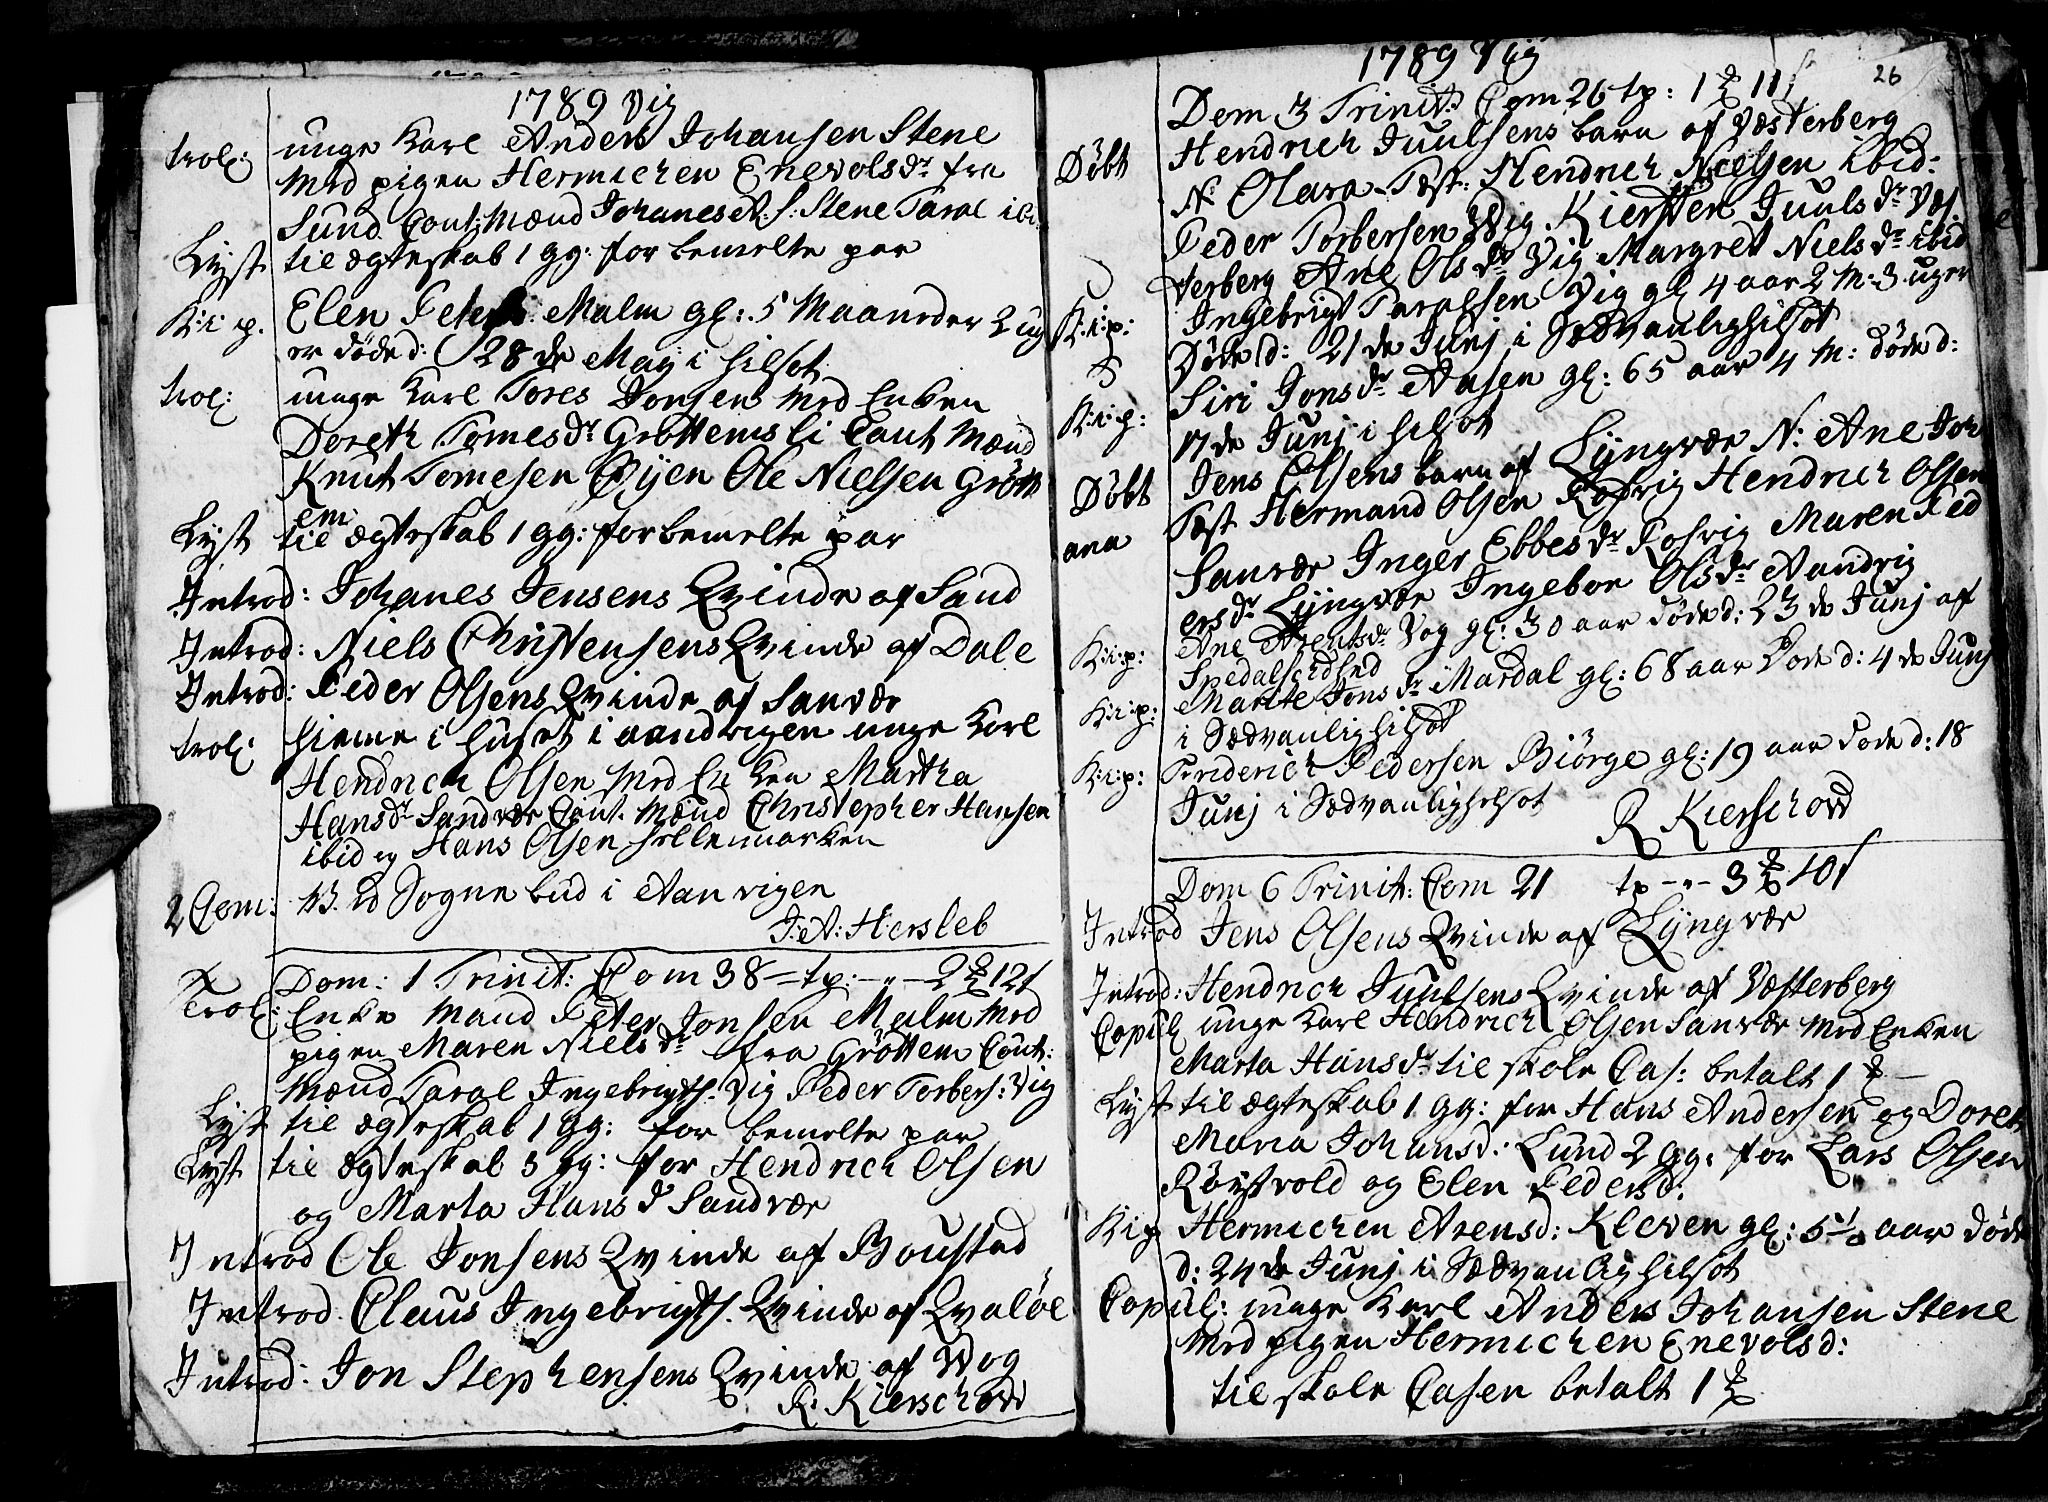 1789 Vig
trol: unge Karl Anders Johansen Stene
med pigen Hermichen Enevolsdr fra
Sund Caut: Mænd Johanes A: S: Stene Taral ibi
Lyst til ægteskab 1 gg: for bemelte par
K:i:p. Elen Peters: Malm gl: 5 Maaneder 2 ug
er døde d: 28 de May i hilsot
trol: unge Karl Tores Jonsen med Enken
Doreth Tomesdr Grøttemsli Caut Mænd
Knut Tomesen Øyen Ole Nielsen Grøtt
em
Lyst til ægteskab 1 gg: for bemelte par
Introd: Johanes Jensens Qvinde af Sand
Introd: Niels Christensens Qvinde af Dale
Introd: Peder Olsens Qvinde af Sanvær
trol: hieme i huset i aandvigen unge Karl
Hendrich Olsen med Enken Martha
Hansdr Sandvær Caut. Mænd Christopher Hansen
ibid og Hans Olsen Hellemarken
2 Com: Sogne bud i Aanvigen
J: A: Hersleb
Dom: 1 Trinit: Com 38 = tp: -"- 2 12
Trol: Enke Mand Peter Jonsen Malm med
pigen Maren Nielsdr fra Grøttem Caut:
Mænd Taral Ingebrigts. Vig Peder Torbers: Vig
Lyst til ægteskab 1 gg: for bemelte par
Lyst til ægteskab 3 gg: for Hendrich Olsen
og Marta Hansd Sandvær
Introd Ole Jonsens Qvinde af Boustad
Introd Claus Ingebrigts. Qvinde af Qvaløe
Introd: Jon Stephensens Qvinde af Vog
R: Kierschow
26
1789 Vig
Dom 3 Trinit: Com 26 tp: 1 11
Døbt Hendrich Juulsens barn af Væsterberg
N: Olara Test: Hendrich Nielsen ibid:
Peder Torbersen Vig Kiersten Juulsdr Væs
terberg Ane Olsdr Vig Margret Nielsdr ibid
K:i:p: Ingebrigt Taralsen Vig gl 4 aar 2 M: 3 uger
Døde d: 21 de Junj i Sædvanlighilsot
K:i:p: Siri Jonsdr Aasen gl: 65 aar 4 M: døde d:
17 de Junj i hilsot
Døbt Jens Olsens barn af Lyngvær N: Ane Joh
ana Test Hermand Olsen Rosvig Hendrich Olsen
Sanvær Inger Ebbesdr Rosvig Maren Ped
ersdr Lyngvær Ingebor Olsdr Aandvig
K:i:p: Ane Arentsdr Vog gl: 30 aar døde d: 23 de Junj af
Spedalschhed
K:i:p: Marite Jonsdr Mardal gl: 68 aar Døde d: 4 de Junj
i Sædvanlighilsot
K:i:p: Friderich Pedersen Biørge gl: 19 aar døde d: 18
Junj i Sædvanlighilsot
R Kierschow
Dom 6 Trinit: Com 21 tp -"- 3 10
Introd Jens Olsens Qvinde af Lyngvær
Introd: Hendrich Juulsens Qvinde af Væsterberg
Copul unge Karl Hendrich Olsen Sanvær med Enken
Marta Hansdr til skole Cas: betalt 1
Lyst til ægteskab 1 gg: for Hans Andersen og Doret
Maria Johansd: Lund 2 gg: for Lars Olsen
Røistvold og Elen Pedersd:
K:i:p Hermichen Arensd: Kleven gl: 5 aar døde
d: 24 de Junj i Sædvanlighilsot
Copul: unge Karl Anders Johansen Stene
med pigen Hermichen Enevolsd:
til skole Casen betalt 1